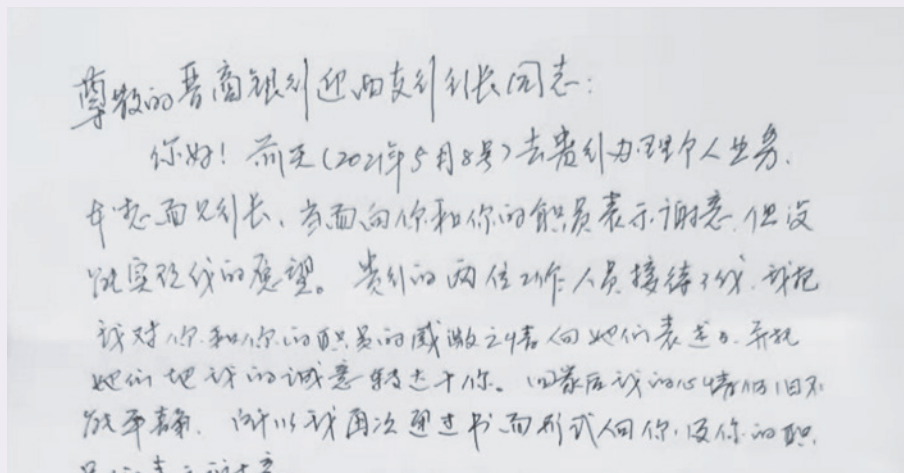 尊敬的晋商银行迎西支行行长同志：
你好！前天（2021年5月8号）去贵行办理个人业务，
本想面见行长，当面向你和你的职员表示谢意，但没
能实现我的愿望。贵行的两位工作人员接待了我，我把
我对你和你的职员的感激之情向她们表达了，并托
她们把我的诚意转达于你。回家后我的心情仍旧不
能平静，所以我再次通过书面形式向你及你的职
员们表示谢意